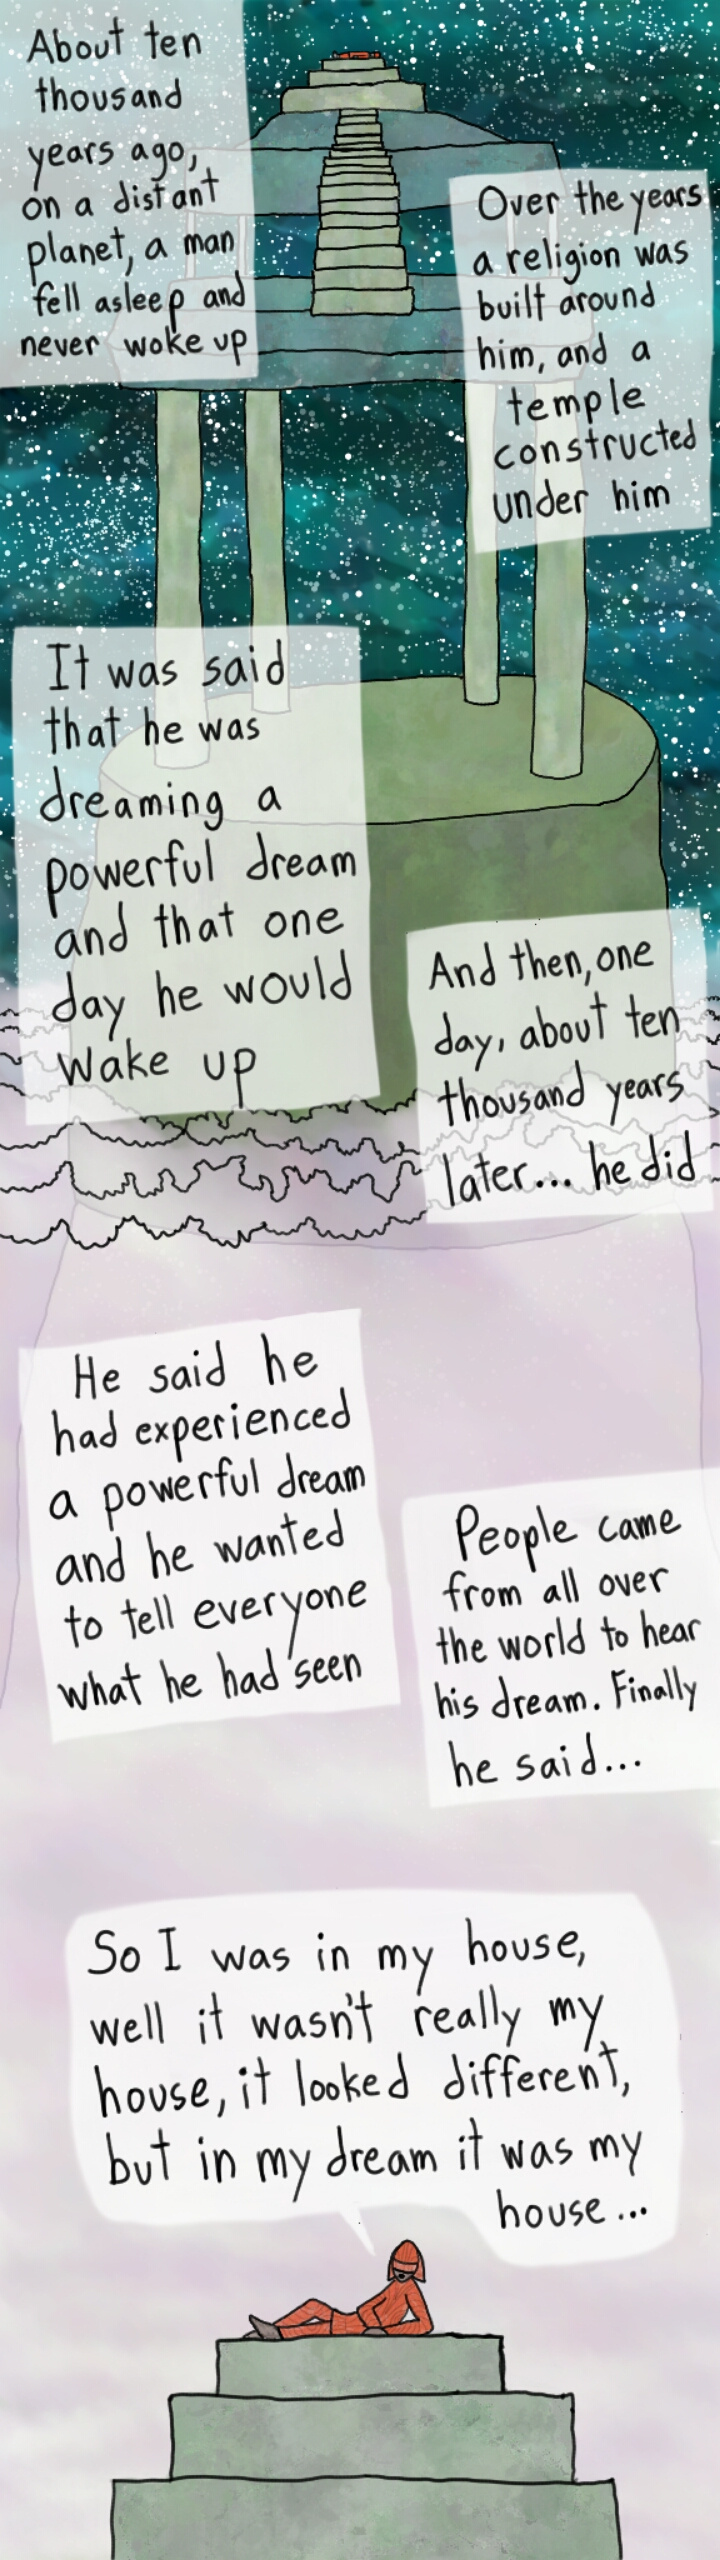 About ten
thousand
years ago,
on a distant
planet, a man
fell asleep and
never woke up
Over the years
a religion was
built around
him, and a
temple
constructed
under him
It was said
that he was
dreaming a
powerful dream
and that one
day he would
wake up
And then, one
day, about ten
thousand years
later... he did
He said he
had experienced
a powerful dream
and he wanted
to tell everyone
what he had seen
People came
from all over
the world to hear
his dream. Finally
he said...
So I was in my house,
well it wasn't really my
house, it looked different,
but in my dream it was my
house...